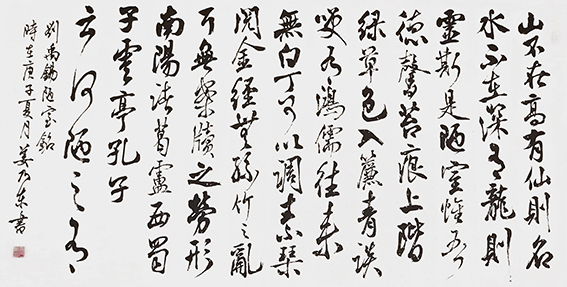 山不在高有仙則名
水不在深有龍則
靈斯是陋室惟吾
德馨苔痕上階
綠草色入簾青談
笑有鴻儒往來
無白丁可以調素琴
閱金經無絲竹之亂
耳無案牘之勞形
南陽諸葛廬西蜀
子雲亭孔子
云何陋之有
劉禹錫陋室銘
時在庚子夏月姜东書